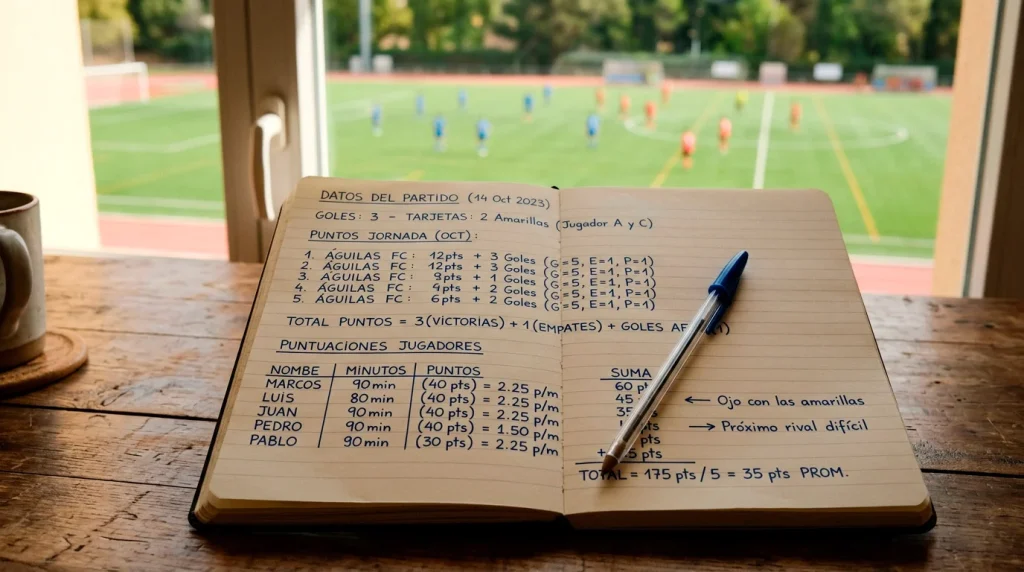 DATOS DEL PARTIDO (14 Oct 2023)
GOLES: 3 - TARJETAS: 2 Amarillas (Jugador A y C)
PUNTOS JORNADA (OCT):
1. ÁGUILAS FC: 12pts + 3 Goles (G=5, E=1, P=1)
2. ÁGUILAS FC: 12pts + 3 Goles (G=5, E=1, P=1)
3. ÁGUILAS FC: 9pts + 1 Goles (G=5, E=1, P=1)
4. ÁGUILAS FC: 4pts + 2 Goles (G=5, E=1, P=1)
5. ÁGUILAS FC: 6pts + 2 Goles (G=5, E=1, P=1)
TOTAL PUNTOS = 3(VICTORIAS) + 1(EMPATES) + GOLES
PUNTUACIONES JUGADORES
NOMBE MINUTOS PUNTOS
MARCOS 90min (40 pts) = 2.25 p/m
LUIS 80min (40 pts) = 2.25 p/m
JUAN 90min (40 pts) = 2.25 p/m
PEDRO 90min (40 pts) = 1.50 p/m
PABLO 90min (30 pts) = 2.25 p/m
SUMA
60
45 ← Ojo con las amarillas
→ Próximo rival difícil
pts
TOTAL = 175 pts / 5 = 35 pts PROM.